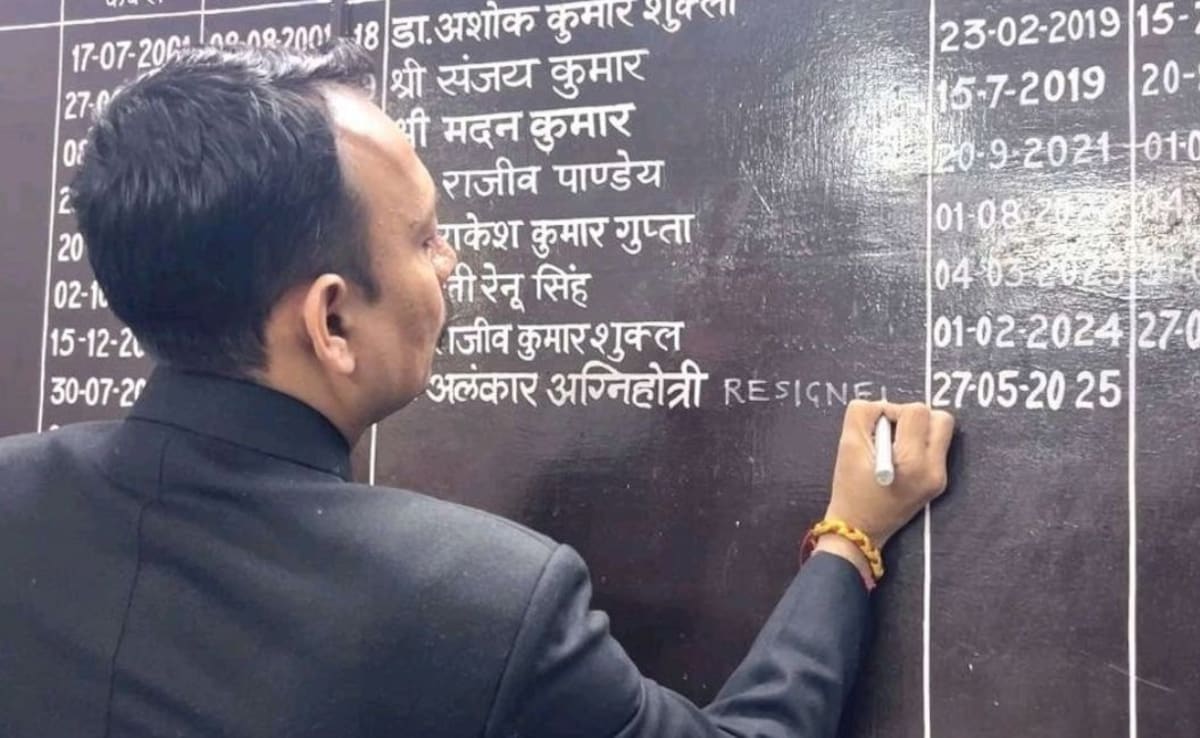 17-07-2001 08-08-2001 18 डा.अशोक कुमार शुक्ला 23-02-2019 15-
श्री संजय कुमार 15-7-2019 20-
मदन कुमार 20-9-2021 01-0
राजीव पाण्डेय 01-08
20 कुमार गुप्ता 04-03-2023
02-10 रेनू सिंह
15-12-20 कुमार शुक्ल 01-02-2024 27-0
30-07-20 अलंकार अग्निहोत्री RESIGNE 27-05-2025